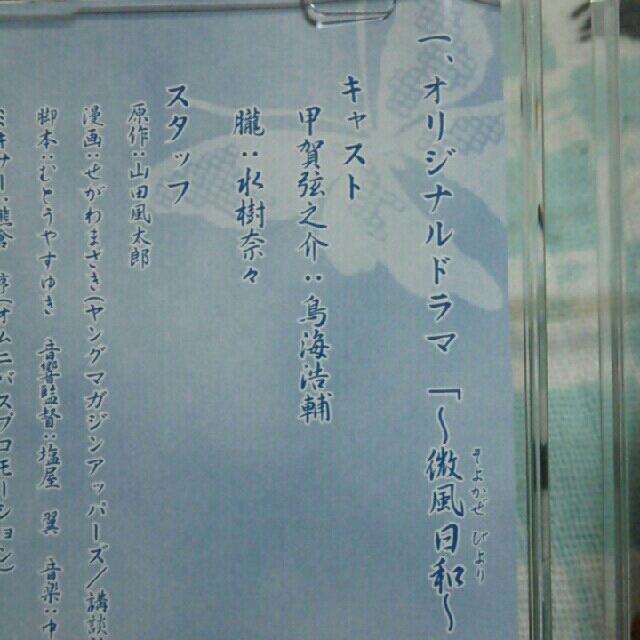 一、オリジナルドラマ「~微風日和~
そよかぜ びより
キャスト
甲賀弦之介：鳥海浩輔
朧：水樹奈々
スタッフ
原作：山田風太郎
漫画：せがわまさき(ヤングマガジンアッパーズ/講談
脚本：むとうやすゆき 音響監督：塩屋 翼 音楽：中
ミキサー：熊倉 亨(オムニバスプロモーション)